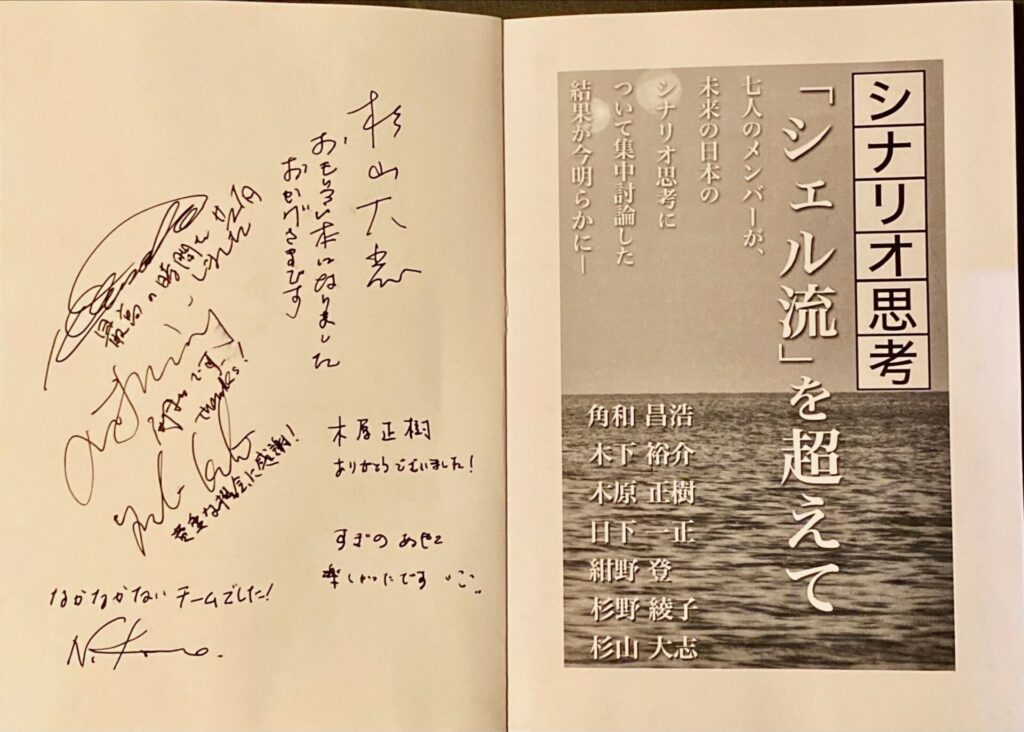 シナリオ思考
「シェル流」を超えて
七人のメンバーが、
未来の日本の
シナリオ思考に
ついて集中討論した
結果が今明らかに―
角和 昌浩
木下 裕介
木原 正樹
日下 一正
紺野 登
杉野 綾子
杉山 大志
杉山大志
おもしろい本になりました
おかげさまです
最高の時間を
です、
thanks!
貴重な機会に感謝!
木原正樹
ありがとうございました!
すぎの あやこ
楽しかったです
なかなかない チームでした!
N. Konno.